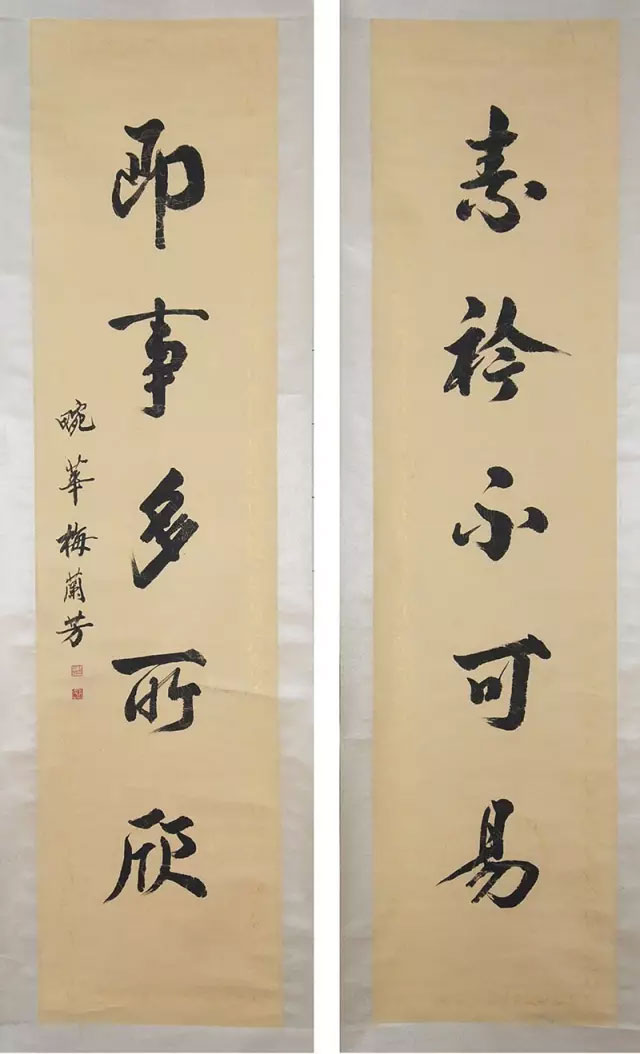 素衿不可易
即事多所欣
畹華梅蘭芳